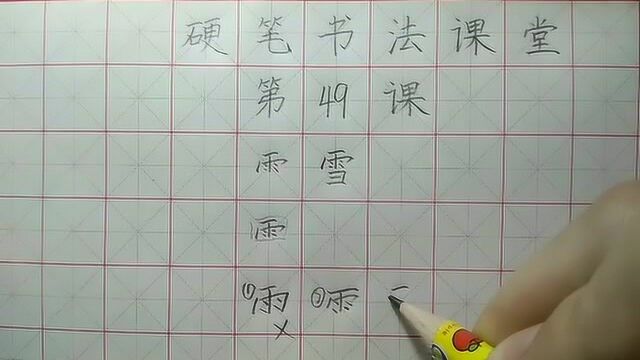 硬笔书法课堂
第49课
⻗雪
⻗
①雨 ②⻗
×